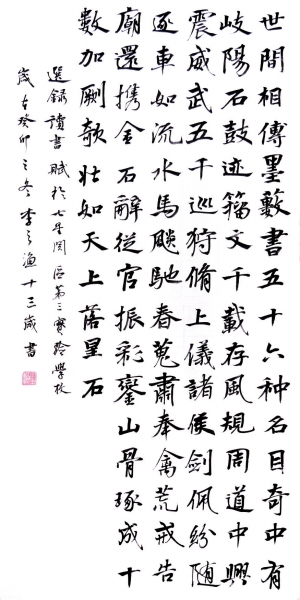 世間相傳墨藪書五十六种名目奇中有
岐陽石鼓迹籀文千載存風規周道中興
震威武五千巡狩脩上儀諸侯劍佩紛随
逐車如流水馬飈馳春蒐肅奉禽荒戒告
廟還携金石辭從官振彩鑾山骨琢成十
數加劂欹壯如天上落星石
選録讀書賦於七星関區第三實驗學校
歲在癸卯之冬李之漁十三歲書